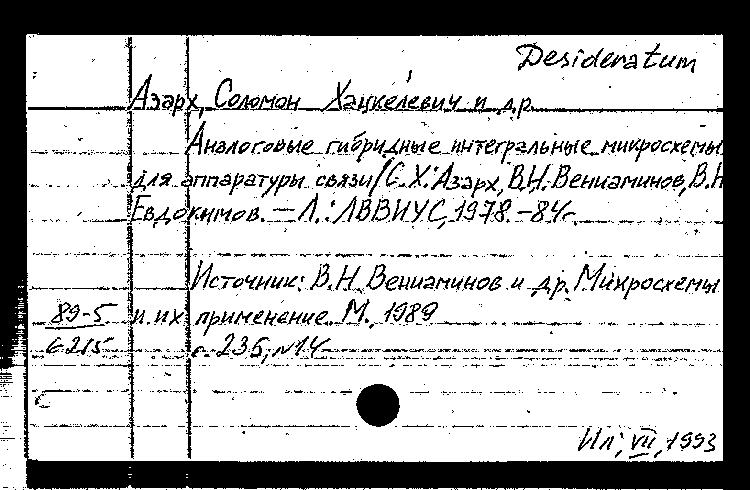 Desideratum
Азарх, Соломон Хацкелевич и др.
Аналоговые гибридные интегральные микросхемы
для аппаратуры связи/С.Х. Азарх, В.Н. Вениаминов, В.Н
Евдокимов. — Л.: ЛВВИУС, 1978. - 84 с.
Источник: В.Н. Вениаминов и др. Микросхемы
89-5 и их применение. М., 1989
6215 с. 236, №14
С
Ил; VII, 1993